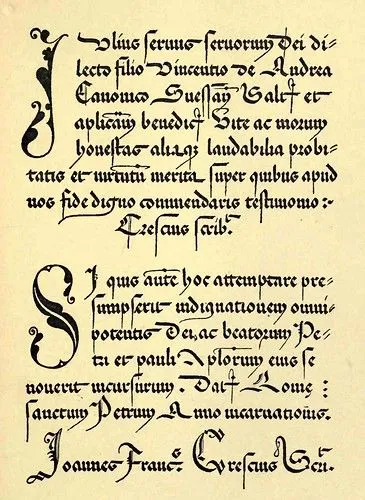 Iulius servus servorum Dei di=
lecto filio Vincentio de Andrea
Canonico Suessan̄ Salt̄ et
aplicam̄ benedict̄ Vite ac morum
honestas aliaq; laudabilia probi=
tatis et virtutum merita super quibus apud
nos fide digno commendaris testimonio :-
Crescius scrib.
Si quis aut̄e hoc attemptare pre=
sumpserit indignationem omni=
potentis Dei, ac beatorum Pe=
tri et pauli Aplorum eius se
noverit incursurum. Dat̄ Rome :
sanctum Petrum Anno incarnationis.
Joannes Franc. Crescius Scri.